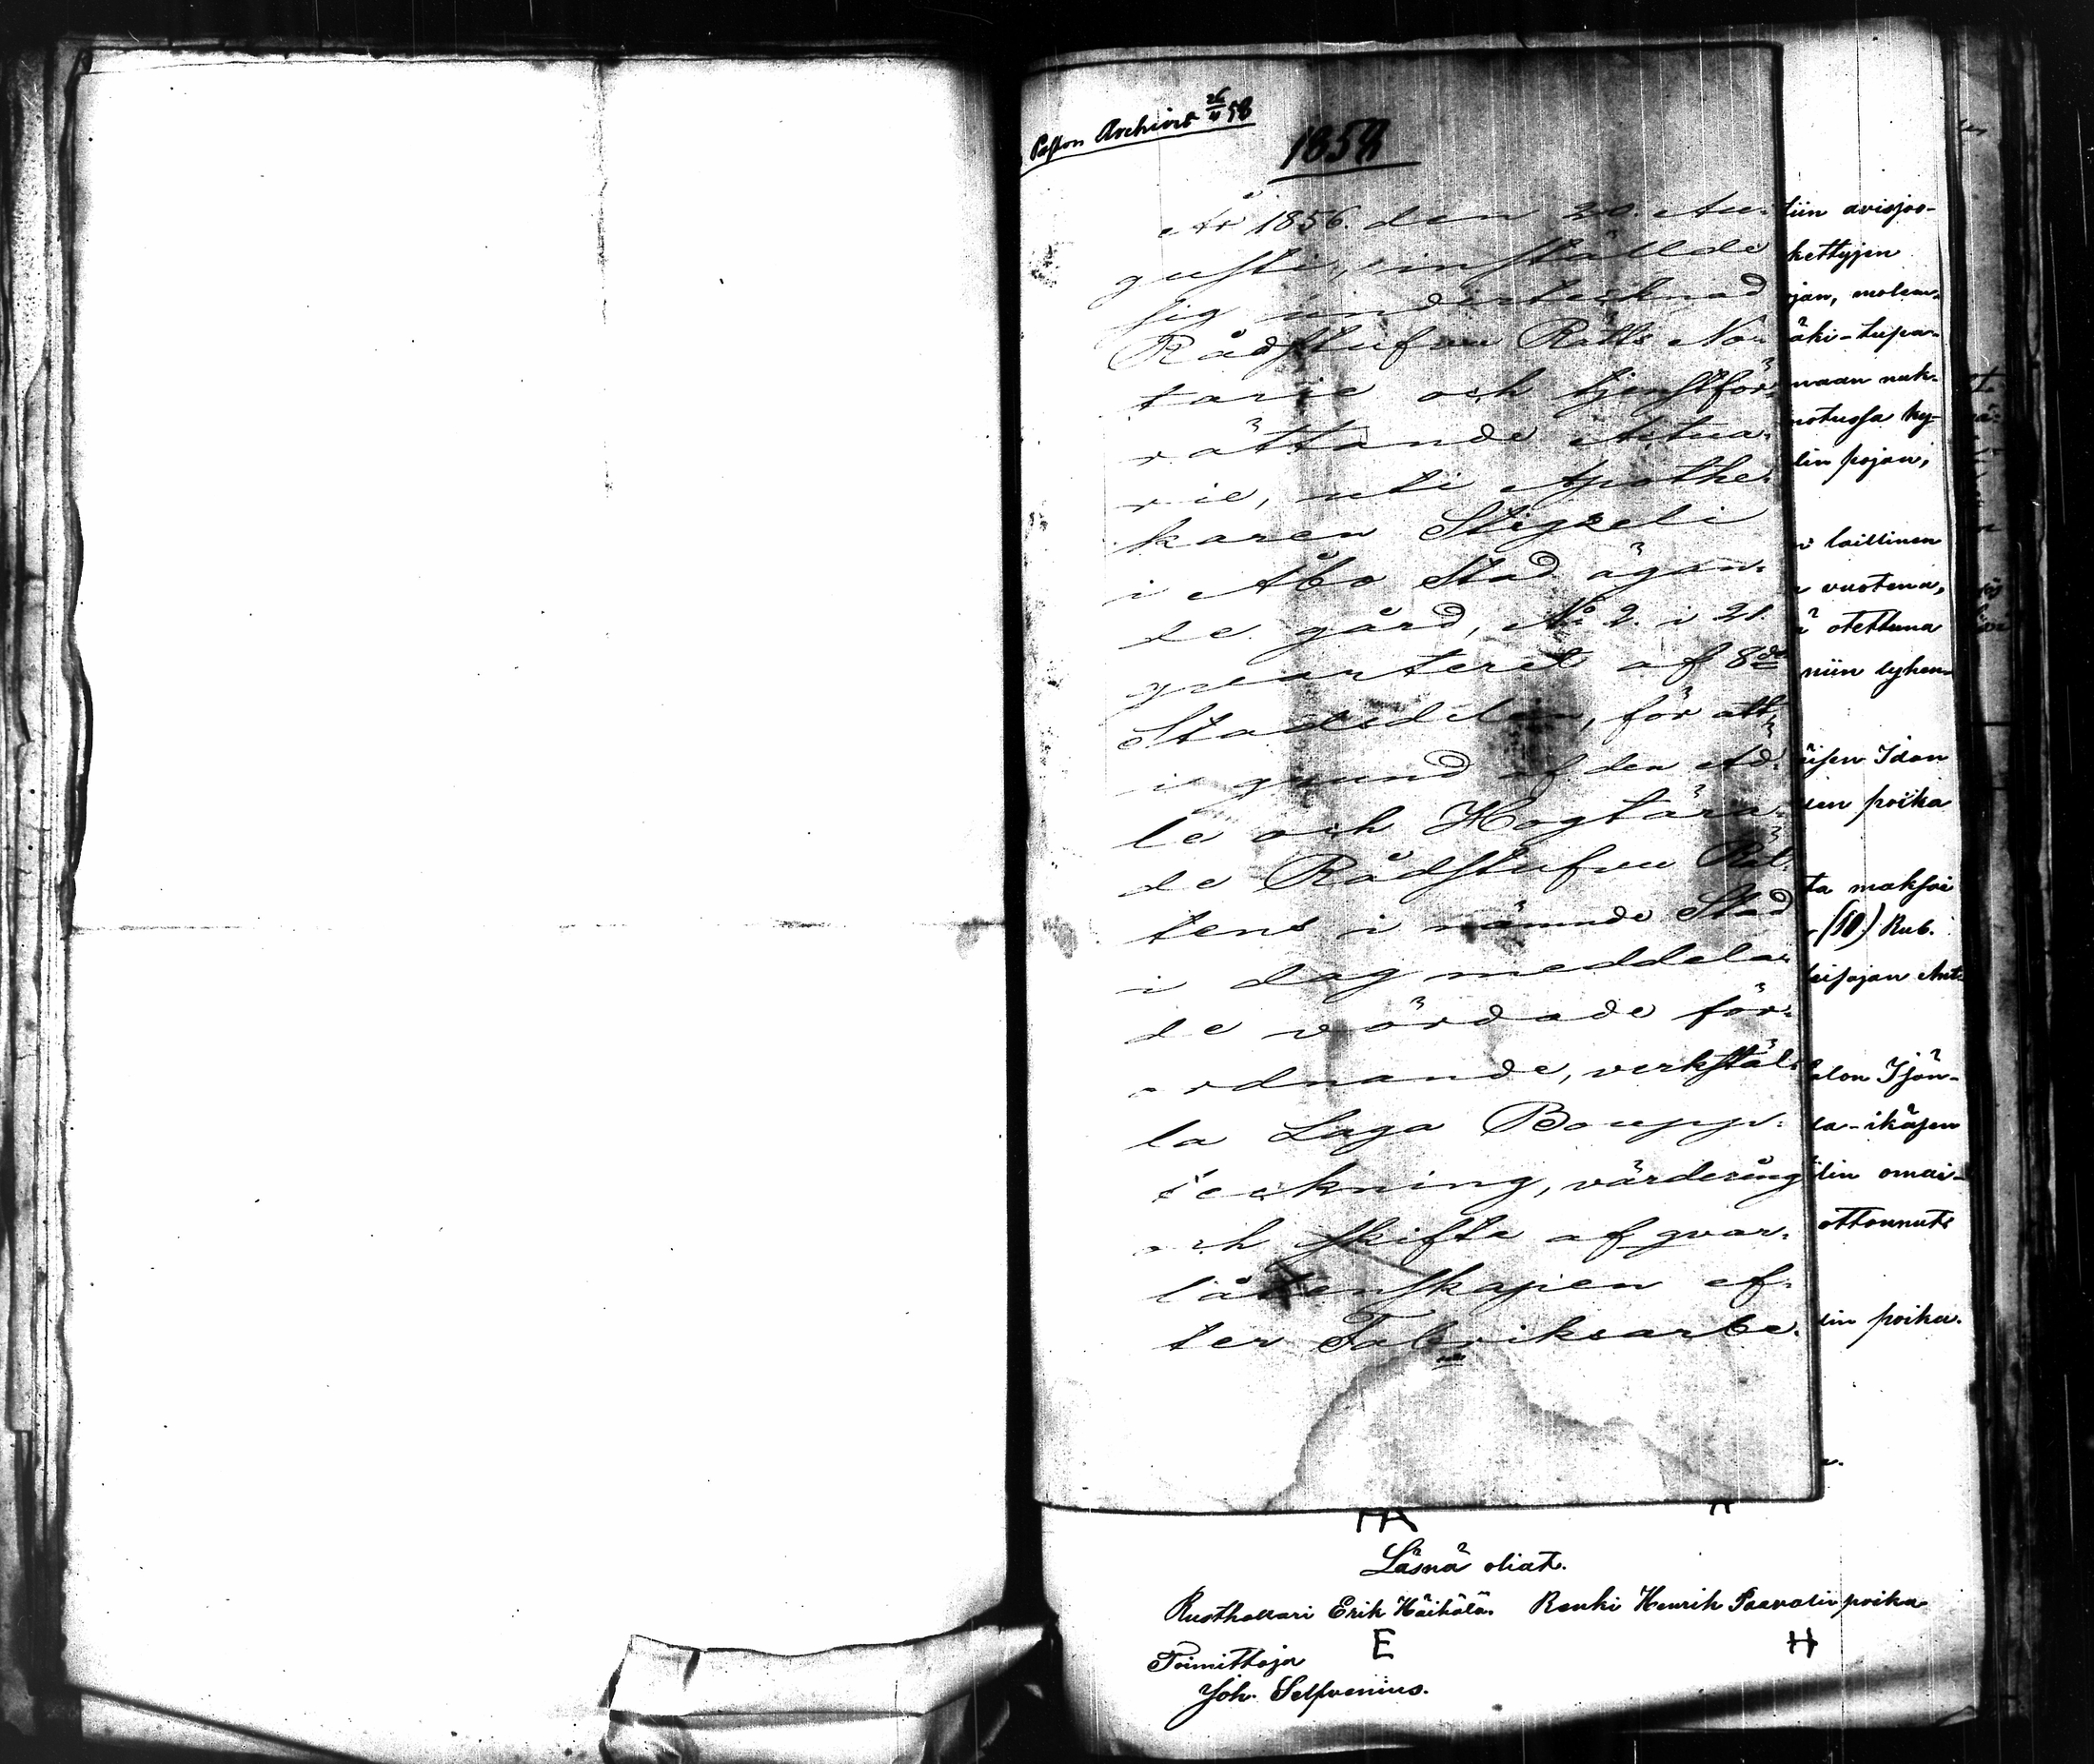 Archivet 26/4 58
1858
År 1856. den 20. Au-
gusti, instälde
sig undertecknad
Rådstufvu Rätts No-
tarie och tjenstför-
rättande Aktua-
rie, uti Apothe-
karen Stigzeli
i Åbo Stad ägan-
de gård, No 2. i 21.
qvarteret af 8de
Stadsdelen, för att
i grund af den Äd-
le och Hogtära-
de Rådstufvu Rät-
tens i nämnde Stad
i dag meddela-
de vördade för-
ordnande, verkstäl-
la Laga Boupp-
teckning, värdering
och skifte af qvar-
låtenskapen ef-
ter Fabriksarbe-
tiin
kettyjen
jan,
äki-tupa-
maan
ky-
lin pojan,
laillinen
vuotena,
otettuna
niin lyhen-
Idon
sen poika
ta maksoi
(10) Rub.
Ant-
la-ikäjen
lin omai-
ottannut
lin poika.
Läsnä oliat.
Rusthollari Erik Häikälä. Renki Henrik Paavalin poika
E H
Toimittaja
Joh. Selfvenius.